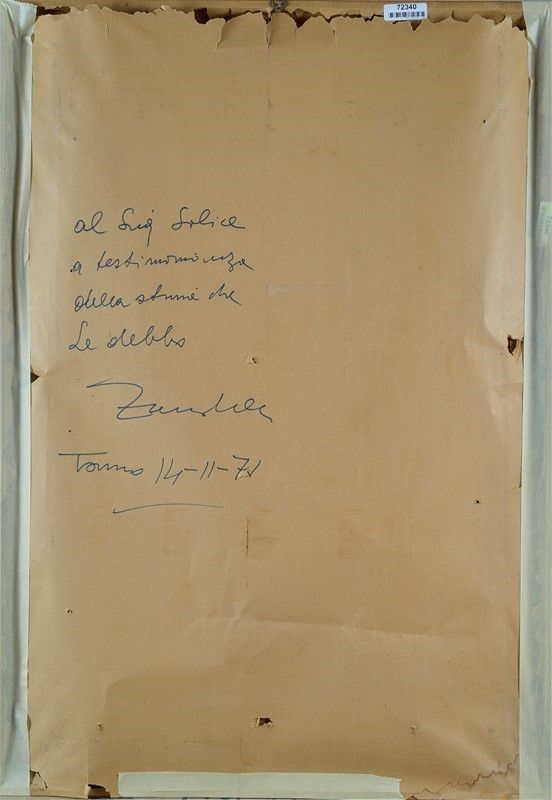 72340
al Sig Solice
a testimonianza
della stima che
Le debbo
Torino 14-11-71